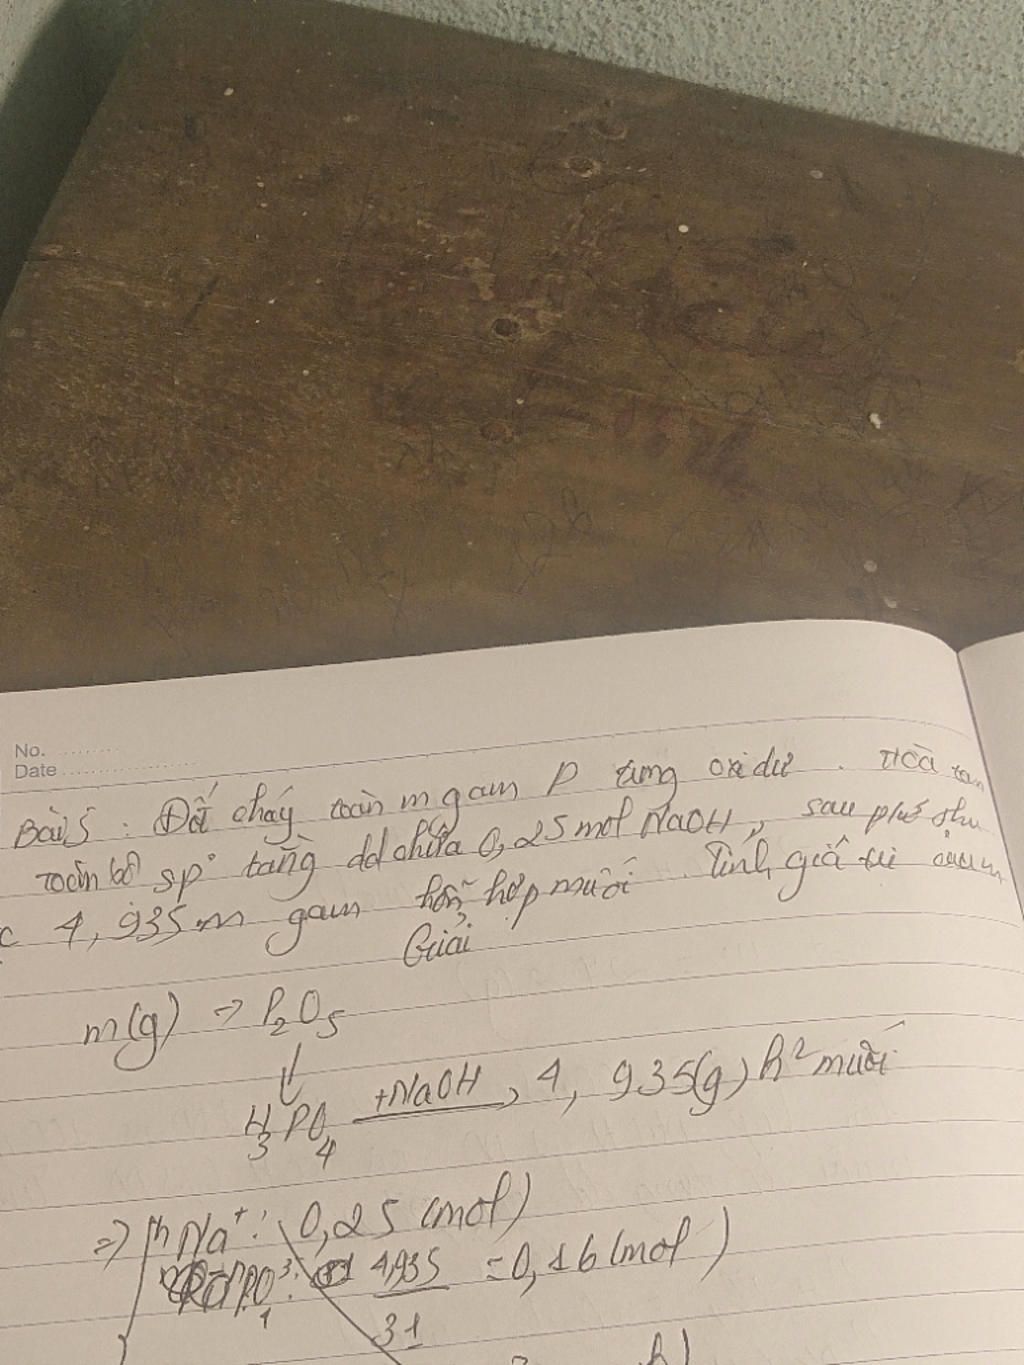 No.
Date
Bài 5: Đốt cháy toàn m gam P trong oxi dư. Hòa tan
toàn bộ sp tằng dd chứa 0,25 mol NaOH, sau phứ thu
4,935.m gam hỗn hợp muối. Tính giá trị của m
Giải
m(g) → P2O5
↓
H3PO4 +NaOH → 4,935(g) h² muối
⇒ n Na+: 0,25 (mol)
PO4 3-: 4,935/31 = 0,16 (mol)